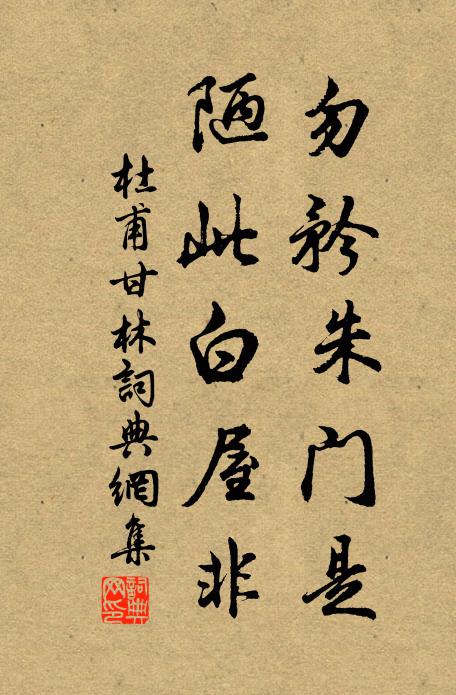 勿矜朱门是
陋此白屋非
杜甫甘林詞典網集
詞典网印